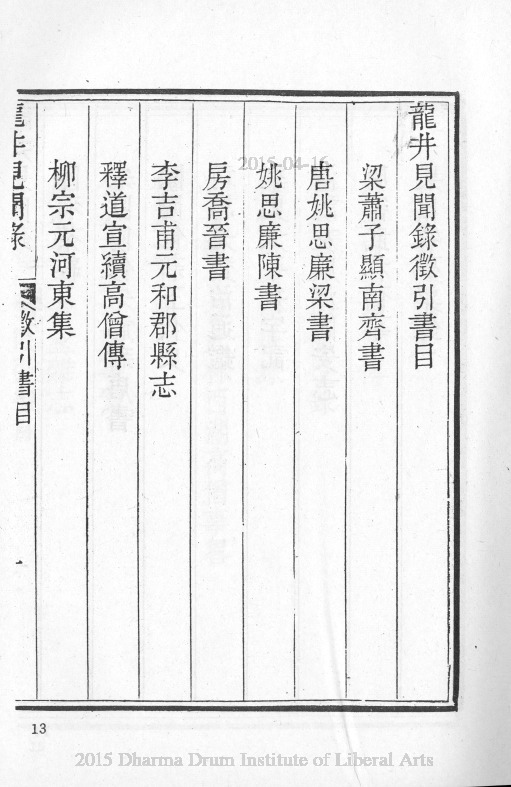 龍井見聞錄徵引書目
梁蕭子顯南齊書
唐姚思廉梁書
姚思廉陳書
房喬晉書
李吉甫元和郡縣志
釋道宣續高僧傳
柳宗元河東集
龍井見聞錄 徵引書目 一
13
2015-04-16
2015 Dharma Drum Institute of Liberal Arts